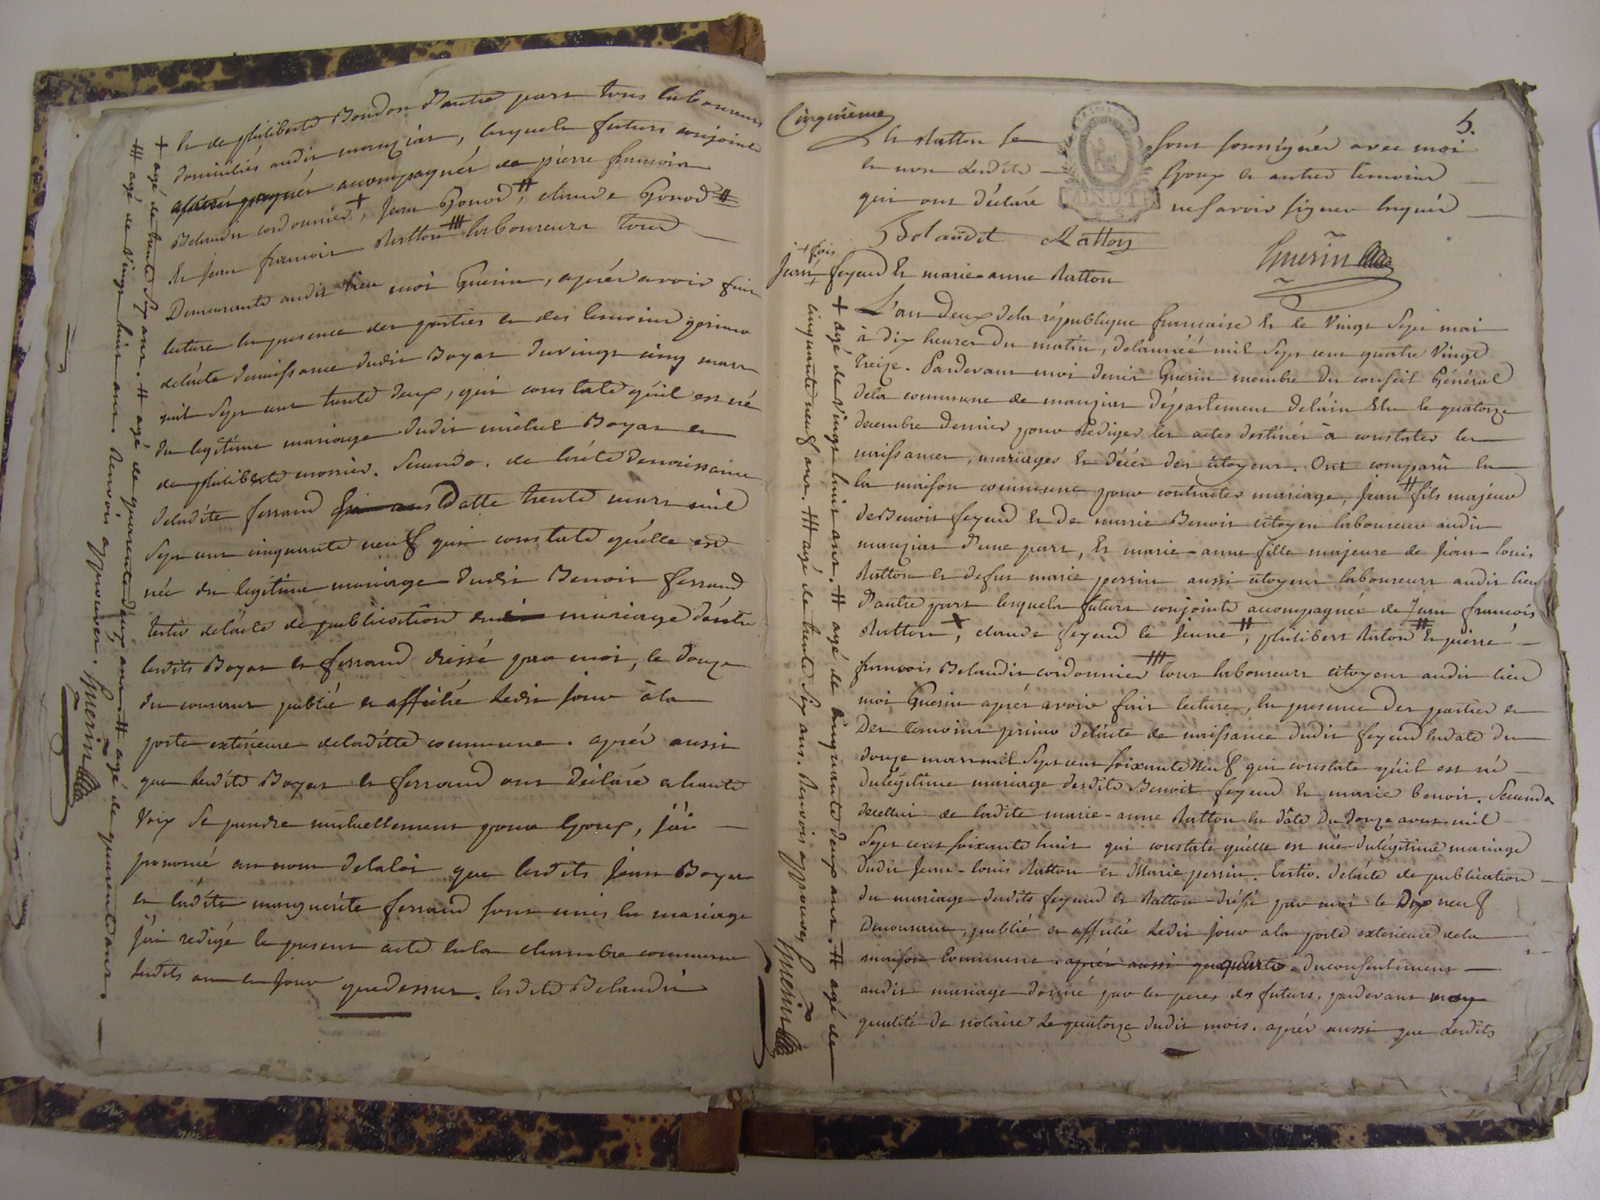 et de philiberte Bondon D'autre part tous laboureurs
domiciliés audit mangiat, lesquels futurs conjoints
accompagnés de pierre francois
Belaudit cordonnier +, Jean Gonod #, claude Gonod #
et jean francois Ratton # laboureurs tous
Demeurants audit lieu moi Guerin, aprés avoir fait
lecture en presence des parties et des temoins primo
delacte denaissance dudit Boyat du vingt cinq mars
mil Sept cent trente deux, qui constate qu'il est né
du legitime mariage dudit michel Boyat et
de philiberte monier. Secundo. de l'acte denaissance
deladite ferrand Datte trente mars mil
Sept cent cinquante neuf qui constate qu'elle est
née du legitime mariage dudit Benoit ferrand
tertio delacte de publication mariage d'entre
lesdits Boyat et ferrand dressé par moi, le douze
du courant publié et affiché ledit jour à la
porte extérieure deladitte commune. aprés aussi
que lesdits Boyat et ferrand ont déclaré a haute
voix Se prendre mutuellement pour Epoux, j'ai
prononcé au nom delaloi que lesdits Jean Boyat
et ladite marguerite ferrand sont unis en mariage
j'ai redigé le present acte en la chambre commune
lesdits an et jour quedessus. lesdits Belaudit
+ agé de trente Sept ans. # agé de quarante deux ans # agé de quarante ans.
# agé de vingt huit ans Renvois approuvés. Guerin
Cinquieme
5.
et Ratton se sont soussignés avec moi
et non lesdits Epoux et autres temoins
qui ont déclaré ne savoir signer enquis
Belaudit Ratton Guerin
Jean fois
feyeud et marie-anne Ratton
L'an deux dela république francaise et le vingt Sept mai
à dix heures du matin, delannée mil Sept cent quatre vingt
treize. Pardevant moi denis Guerin membre du conseil Général
dela commune de mangiat département delain Elu le quatorze
decembre dernier pour Rédiger les actes destinés a constater les
naissances, mariages et décés des citoyens. Ont comparu en
la maison commune pour contracter mariage, Jean # fils majeur
de Benoit feyeud et de marie Benoit citoyen laboureur audit
mangiat d'une part, Et marie-anne fille majeure de Jean-louis
Ratton et defut marie perrin aussi citoyens laboureurs audit lieu
d'autre part lesquels futurs conjoints accompagnés de Jean francois
Ratton +, claude feyeud le Jeune #, philibert Ratton # et pierre
francois Belaudit cordonnier # tous laboureurs citoyens audit lieu
moi Guerin aprés avoir fait lecture, en presence des parties et
Des temoins primo delacte de naissance dudit feyeud endate du
douze mars mil Sept cent soixante neuf qui constate qu'il est né
du legitime mariage desdits Benoit feyeud et marie benoit. Secundo
decellui de ladite marie-anne Ratton en date du douze avril mil
Sept cent soixante huit qui constate quelle est née dulégitime mariage
dudit Jean-louis Ratton et Marie perrin. tertio. delacte de publication
du mariage desdits feyeud et Ratton dressé par moi le Dix neuf
Ducourant, publié et affiché ledit jour a la porte exterieure dela
maison Commune. aprés aussi que quarto. du consentement
audit mariage donné par les peres des futurs, pardevant moy
qualité de notaire le quatorze dudit mois. aprés aussi que lesdits
+ agé de vingt huit ans, # agé de cinquante deux ans. # agé de
cinquante neuf ans. # agé de trente Sept ans. Renvois approuvés Guerin